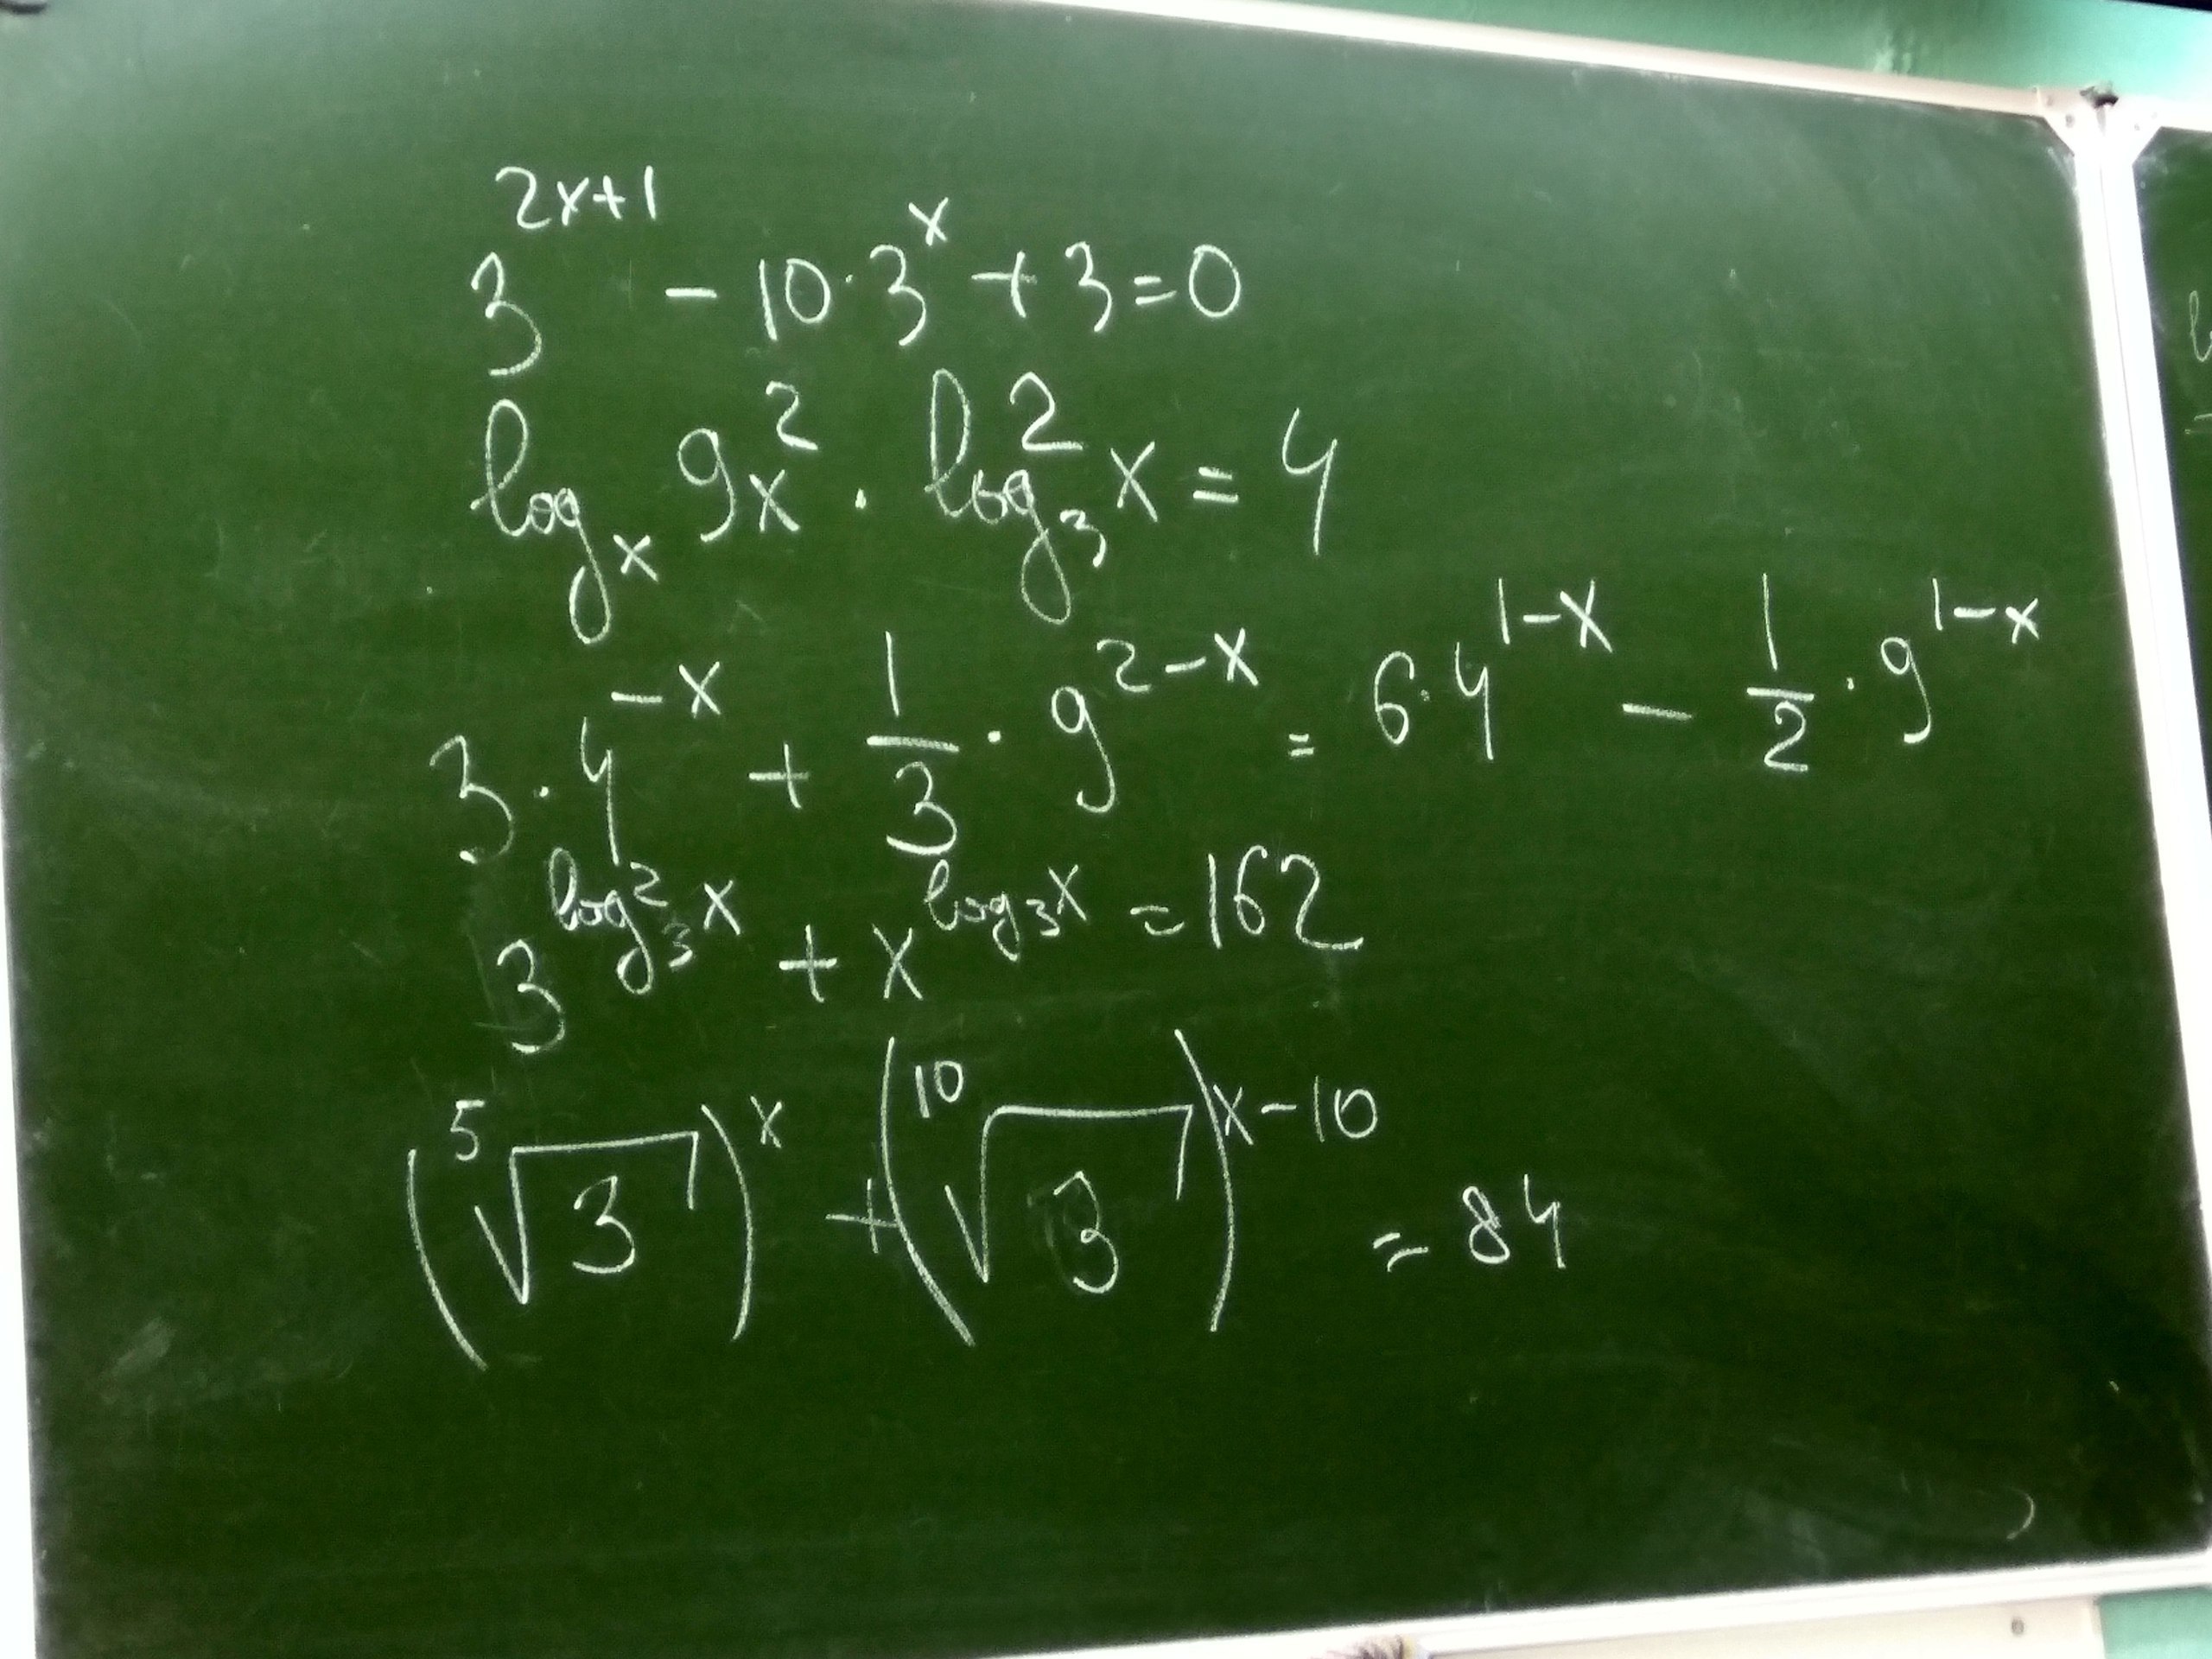 3^{2x+1} - 10·3^x + 3 = 0
log_x 9x^2 · log_3^2 x = 4
3·4^{-x} + \frac{1}{3}·9^{2-x} = 6·4^{1-x} - \frac{1}{2}·9^{1-x}
3^{log_3^2 x} + x^{log_3 x} = 162
(\sqrt[5]{3})^x + (\sqrt[10]{3})^{x-10} = 84